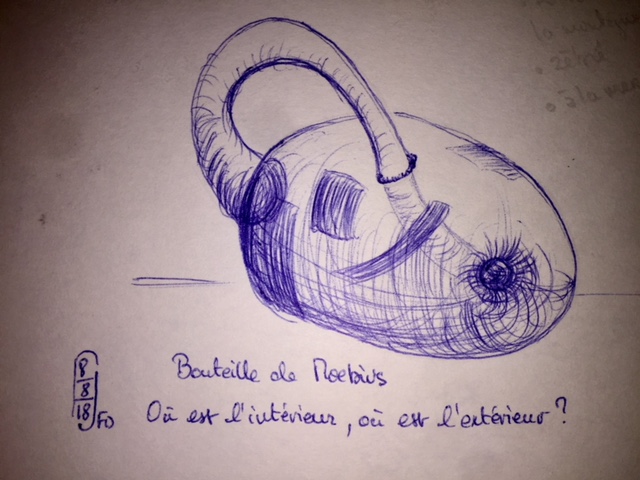 la
• zéro
• à la
Bouteille de Moebius
8
8
18
FD
Où est l'intérieur, où est l'extérieur ?